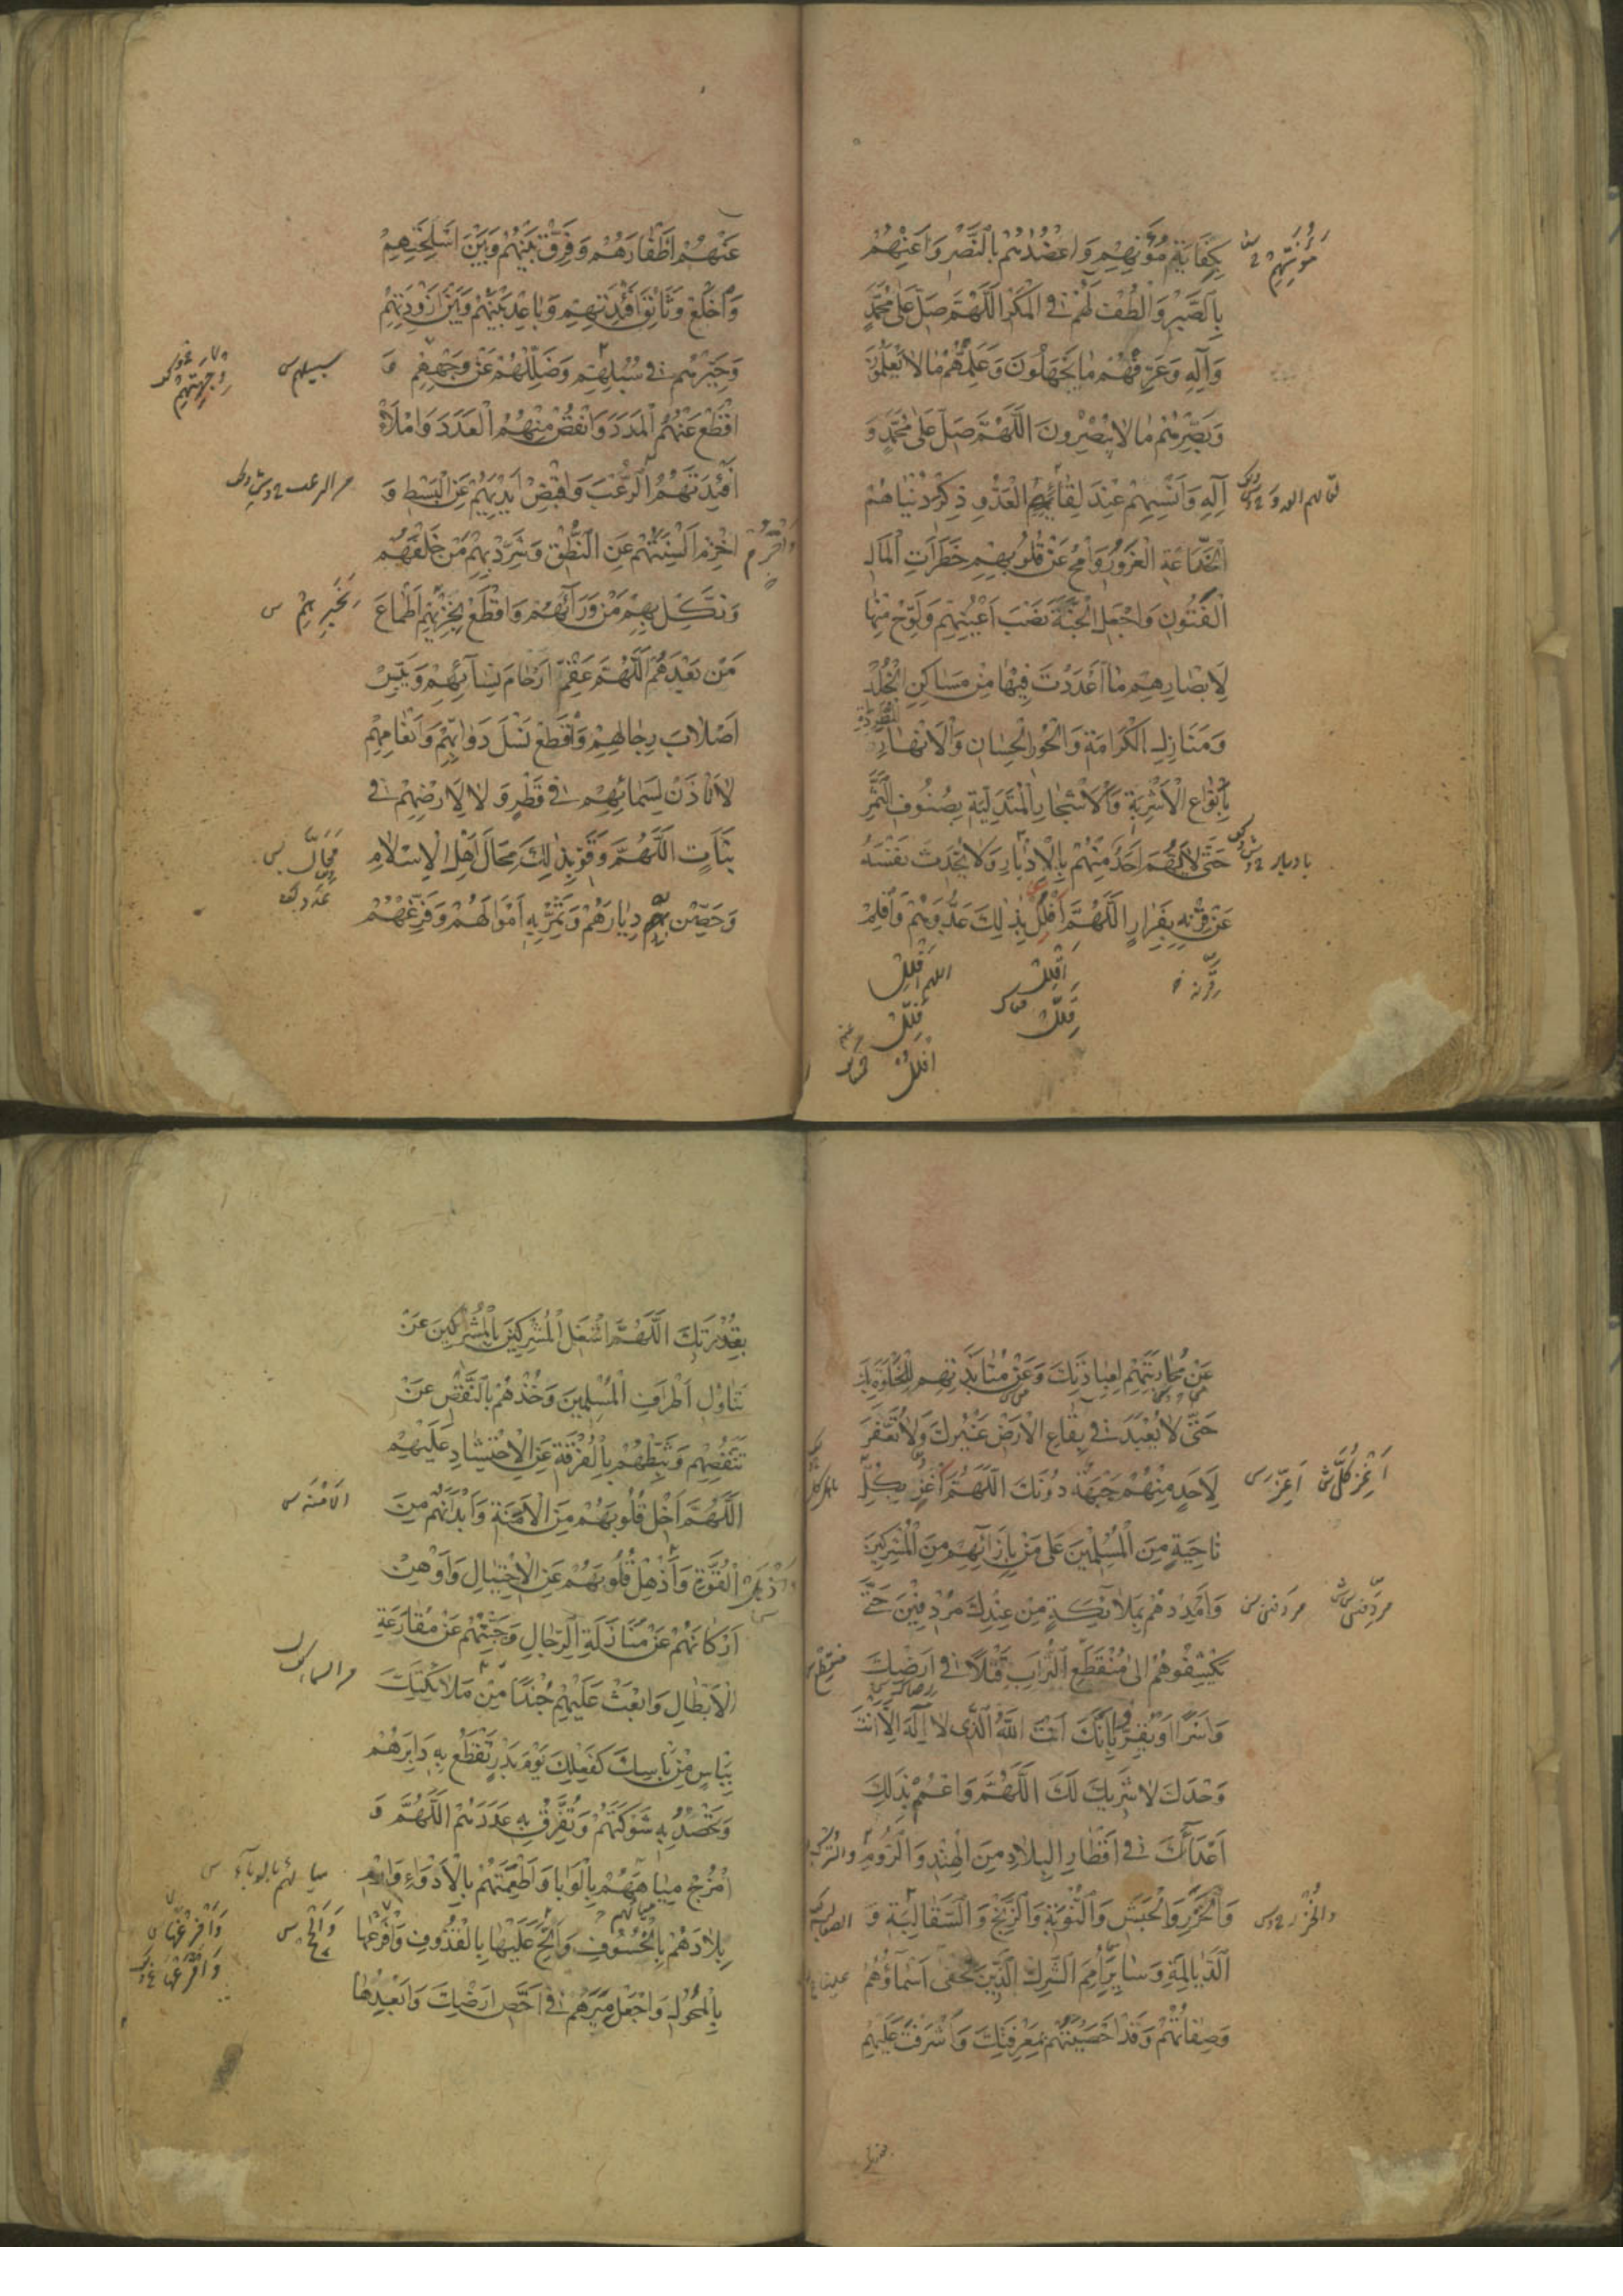 بِكِفَايَةِ مُؤَنِهِمْ وَاعْضُدْهُمْ بِالنَّصْرِ وَاَعِنْهُمْ
مَؤُنَتِهِمْ
بِالصَّبْرِ وَالْطُفْ لَهُمْ فِي الْمَكْرِ اَللّٰهُمَّ صَلِّ عَلٰى مُحَمَّدٍ
وَآلِهِ وَعَرِّفْهُمْ مَا يَجْهَلُونَ وَعَلِّمْهُمْ مَا لَا يَعْلَمُونَ
وَبَصِّرْهُمْ مَا لَا يُبْصِرُونَ اَللّٰهُمَّ صَلِّ عَلٰى مُحَمَّدٍ وَ
آلِهِ وَاَنْسِهِمْ عِنْدَ لِقَائِهِمُ الْعَدُوَّ ذِكْرَ دُنْيَاهُمُ
الْخَدَّاعَةِ الْغَرُورِ وَامْحُ عَنْ قُلُوبِهِمْ خَطَرَاتِ الْمَالِ
الْفَتُونِ وَاجْعَلِ الْجَنَّةَ نَصْبَ اَعْيُنِهِمْ وَلَوِّحْ مِنْهَا
لِاَبْصَارِهِمْ مَا اَعْدَدْتَ فِيهَا مِنْ مَسَاكِنِ الْخُلْدِ
وَمَنَازِلِ الْكَرَامَةِ وَالْحُورِ الْحِسَانِ وَالْاَنْهَارِ الْمُطَّرِدَةِ
بِاَنْوَاعِ الْاَشْرِبَةِ وَالْاَشْجَارِ الْمُتَدَلِّيَةِ بِصُنُوفِ الثَّمَرِ
حَتّٰى لَا يَهُمَّ اَحَدٌ مِنْهُمْ بِالْاِدْبَارِ وَلَا يُحَدِّثَ نَفْسَهُ
بادبار
عَنْ قِرْنِهِ بِفِرَارٍ اَللّٰهُمَّ افْلُلْ بِذٰلِكَ عَدُوَّهُمْ وَاَقْلِمْ
اللهم
عَنْهُمْ اَظْفَارَهُمْ وَفَرِّقْ بَيْنَهُمْ وَبَيْنَ اَسْلِحَتِهِمْ
وَاخْلَعْ وَثَائِقَ اَفْئِدَتِهِمْ وَبَاعِدْ بَيْنَهُمْ وَبَيْنَ اَزْوِدَتِهِمْ
وَحَيِّرْهُمْ فِي سُبُلِهِمْ وَضَلِّلْهُمْ عَنْ وَجْهِهِمْ وَ
سبيلهم س
اقْطَعْ عَنْهُمُ الْمَدَدَ وَانْقُصْ مِنْهُمُ الْعَدَدَ وَامْلَأْ
اَفْئِدَتَهُمُ الرُّعْبَ وَاقْبِضْ اَيْدِيَهُمْ عَنِ الْبَسْطِ وَ
اخْزِمْ اَلْسِنَتَهُمْ عَنِ النُّطْقِ وَشَرِّدْ بِهِمْ مَنْ خَلْفَهُمْ
وَنَكِّلْ بِهِمْ مَنْ وَرَائَهُمْ وَاقْطَعْ بِخِزْيِهِمْ اَطْمَاعَ
مَنْ بَعْدَهُمْ اَللّٰهُمَّ عَقِّمْ اَرْحَامَ نِسَائِهِمْ وَيَبِّسْ
اَصْلَابَ رِجَالِهِمْ وَاقْطَعْ نَسْلَ دَوَابِّهِمْ وَاَنْعَامِهِمْ
لَا تَأْذَنْ لِسَمَائِهِمْ فِي قَطْرٍ وَلَا لِاَرْضِهِمْ فِي
نَبَاتٍ اَللّٰهُمَّ وَقَوِّ بِذٰلِكَ مِحَالَ اَهْلِ الْاِسْلَامِ
مَحَالّ س
وَحَصِّنْ بِهِ دِيَارَهُمْ وَثَمِّرْ بِهِ اَمْوَالَهُمْ وَفَرِّغْهُمْ
عَنْ مُحَارَبَتِهِمْ لِعِبَادَتِكَ وَعَنْ مُنَابَذَتِهِمْ لِلْخَلْوَةِ بِكَ
حَتّٰى لَا يُعْبَدَ فِي بِقَاعِ الْاَرْضِ غَيْرُكَ وَلَا تُعَفَّرَ
لِاَحَدٍ مِنْهُمْ جَبْهَةٌ دُونَكَ اَللّٰهُمَّ اغْزُ بِكُلِّ
نَاحِيَةٍ مِنَ الْمُسْلِمِينَ عَلٰى مَنْ بِاِزَائِهِمْ مِنَ الْمُشْرِكِينَ
وَاَمْدِدْهُمْ بِمَلَائِكَةٍ مِنْ عِنْدِكَ مُرْدِفِينَ حَتّٰى
مردفين س
يَكْشِفُوهُمْ اِلٰى مُنْقَطَعِ التُّرَابِ قَتْلًا فِي اَرْضِكَ
وَاَسْرًا اَوْ يُقِرُّوا بِاَنَّكَ اَنْتَ اللّٰهُ الَّذِي لَا اِلٰهَ اِلَّا اَنْتَ
وَحْدَكَ لَا شَرِيكَ لَكَ اَللّٰهُمَّ وَاعْمُمْ بِذٰلِكَ
اَعْدَائَكَ فِي اَقْطَارِ الْبِلَادِ مِنَ الْهِنْدِ وَالرُّومِ وَالتُّرْكِ
وَالْخَزَرِ وَالْحَبَشِ وَالنُّوبَةِ وَالزَّنْجِ وَالسَّقَالِبَةِ وَ
الدَّيَالِمَةِ وَسَائِرِ اُمَمِ الشِّرْكِ الَّذِينَ تَخْفٰى اَسْمَاؤُهُمْ
وَصِفَاتُهُمْ وَقَدْ اَحْصَيْتَهُمْ بِمَعْرِفَتِكَ وَاَشْرَفْتَ عَلَيْهِمْ
بِقُدْرَتِكَ اَللّٰهُمَّ اشْغَلِ الْمُشْرِكِينَ بِالْمُشْرِكِينَ عَنْ
تَنَاوُلِ اَطْرَافِ الْمُسْلِمِينَ وَخُذْهُمْ بِالنَّقْصِ عَنْ
تَنَقُّصِهِمْ وَثَبِّطْهُمْ بِالْفُرْقَةِ عَنِ الْاِحْتِشَادِ عَلَيْهِمْ
اَللّٰهُمَّ اَخْلِ قُلُوبَهُمْ مِنَ الْاَمَنَةِ وَاَبْدَانَهُمْ مِنَ
الامنة س
الْقُوَّةِ وَاَذْهِلْ قُلُوبَهُمْ عَنِ الْاِحْتِيَالِ وَاَوْهِنْ
اَرْكَانَهُمْ عَنْ مُنَازَلَةِ الرِّجَالِ وَجَبِّنْهُمْ عَنْ مُقَارَعَةِ
الْاَبْطَالِ وَابْعَثْ عَلَيْهِمْ جُنْدًا مِنْ مَلَائِكَتِكَ
بِبَأْسٍ مِنْ بَأْسِكَ كَفِعْلِكَ يَوْمَ بَدْرٍ تَقْطَعُ بِهِ دَابِرَهُمْ
وَتَحْصُدُ بِهِ شَوْكَتَهُمْ وَتُفَرِّقُ بِهِ عَدَدَهُمْ اَللّٰهُمَّ وَ
امْزُجْ مِيَاهَهُمْ بِالْوَبَا وَاَطْعِمَتَهُمْ بِالْاَدْوَاءِ وَارْمِ
بِلَادَهُمْ بِالْخُسُوفِ وَاَلِحَّ عَلَيْهَا بِالْقُذُوفِ وَافْرَعْهَا
بِالْمُحُولِ وَاجْعَلْ مِيَرَهُمْ فِي اَحَصِّ اَرْضِكَ وَاَبْعَدِهَا